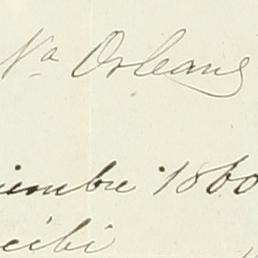 Na Orleans
iembre 1860
ecibi